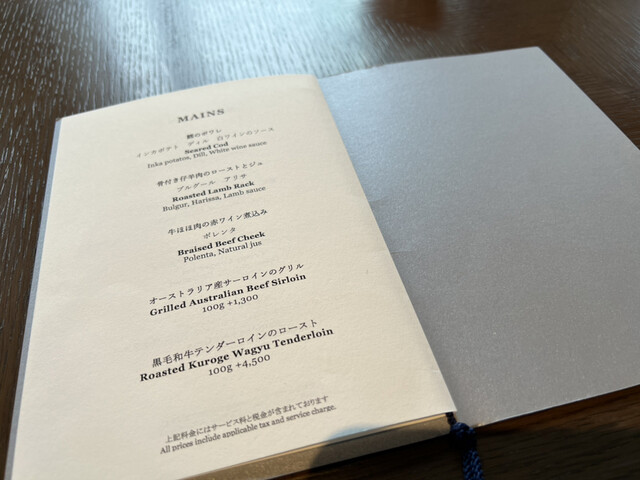 MAINS
鱈のポワレ
インカポテト　ディル　白ワインのソース
Seared Cod
Inka potatos, Dill, White wine sauce
骨付き仔羊肉のローストとジュ
ブルグール　アリサ
Roasted Lamb Rack
Bulgur, Harissa, Lamb sauce
牛ほほ肉の赤ワイン煮込み
ポレンタ
Braised Beef Cheek
Polenta, Natural jus
オーストラリア産サーロインのグリル
Grilled Australian Beef Sirloin
100g +1,300
黒毛和牛テンダーロインのロースト
Roasted Kuroge Wagyu Tenderloin
100g +4,500
上記料金にはサービス料と税金が含まれております
All prices include applicable tax and service charge.